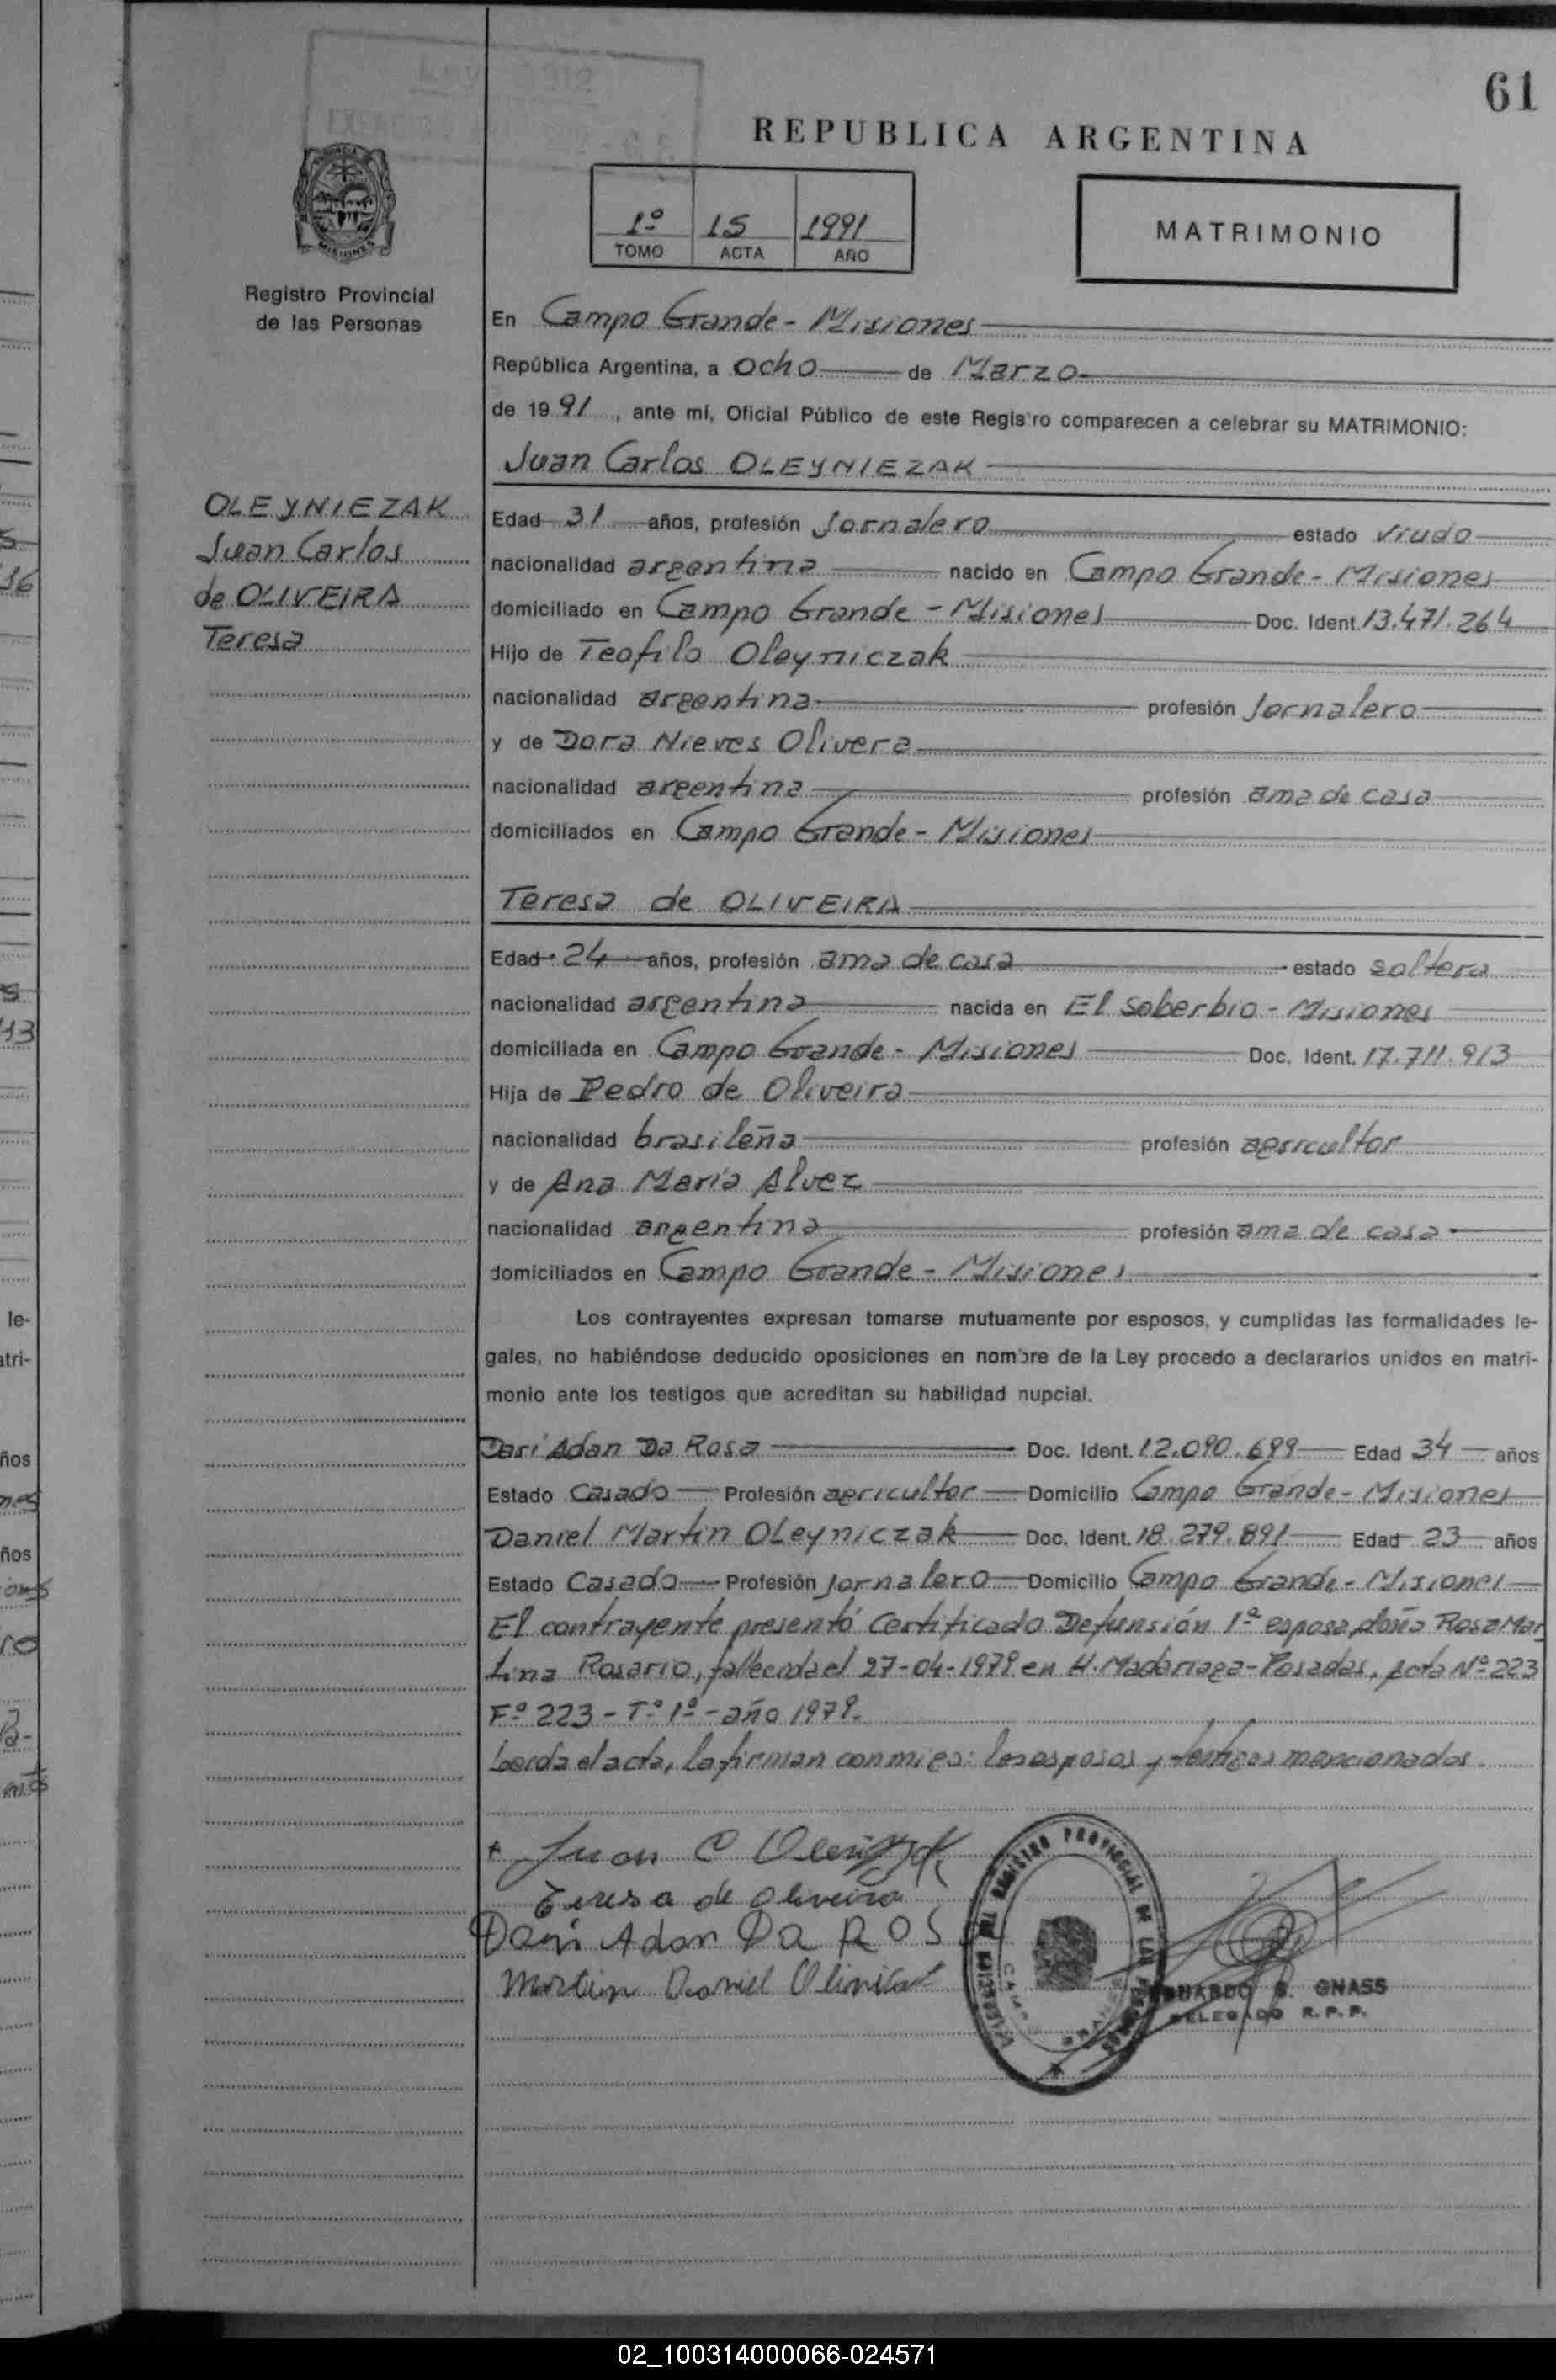 61
REPUBLICA ARGENTINA
1º 15 1991
TOMO ACTA AÑO
MATRIMONIO
MISIONES
Registro Provincial
de las Personas
En Campo Grande - Misiones
República Argentina, a ocho de Marzo
de 1991, ante mí, Oficial Público de este Registro comparecen a celebrar su MATRIMONIO:
Juan Carlos OLEYNIEZAK
OLEYNIEZAK
Juan Carlos
de OLIVEIRA
Teresa
Edad 31 años, profesión Jornalero estado viudo
nacionalidad argentina nacido en Campo Grande - Misiones
domiciliado en Campo Grande - Misiones Doc. Ident. 13.471.264
Hijo de Teofilo Oleyniczak
nacionalidad argentina profesión Jornalero
y de Dora Nieves Olivera
nacionalidad argentina profesión ama de casa
domiciliados en Campo Grande - Misiones
Teresa de OLIVEIRA
Edad 24 años, profesión ama de casa estado soltera
nacionalidad argentina nacida en El Soberbio - Misiones
domiciliada en Campo Grande - Misiones Doc. Ident. 17.711.913
Hija de Pedro de Oliveira
nacionalidad brasileña profesión agricultor
y de Ana María Alvez
nacionalidad argentina profesión ama de casa
domiciliados en Campo Grande - Misiones
Los contrayentes expresan tomarse mutuamente por esposos, y cumplidas las formalidades le-
gales, no habiéndose deducido oposiciones en nombre de la Ley procedo a declararlos unidos en matri-
monio ante los testigos que acreditan su habilidad nupcial.
Dari Adan Da Rosa Doc. Ident. 12.090.699 Edad 34 años
Estado Casado Profesión agricultor Domicilio Campo Grande - Misiones
Daniel Martín Oleyniczak Doc. Ident. 18.279.891 Edad 23 años
Estado Casado Profesión Jornalero Domicilio Campo Grande - Misiones
El contrayente presentó Certificado Defunsión 1ª esposa, doña Rosa Mar
tina Rosario, fallecida el 27-04-1979 en H. Madariaga - Posadas, Acta Nº 223
Fº 223 - Tº 1º - año 1979.
Leída el acta, la firman conmigo: los esposos y testigos mencionados
Juan C
Teresa de Oliveira
Dari Adan Da ROS
Martin Daniel
REGISTRO PROVINCIAL DE LAS
EDUARDO GNASS
DELEGADO R.P.P.
02_100314000066-024571